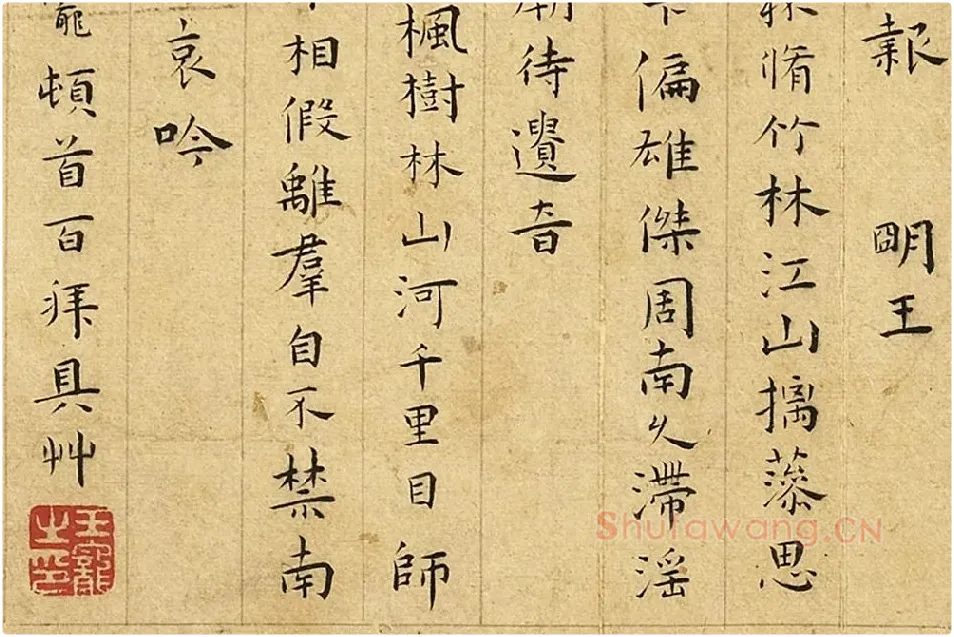 報 明王
脩竹林江山摛藻思
偏雄傑周南久滯淫
待遺音
楓樹林山河千里目師
相假離羣自不禁南
哀吟
寵頓首百拜具艸
王寵之印
Shufawang.CN